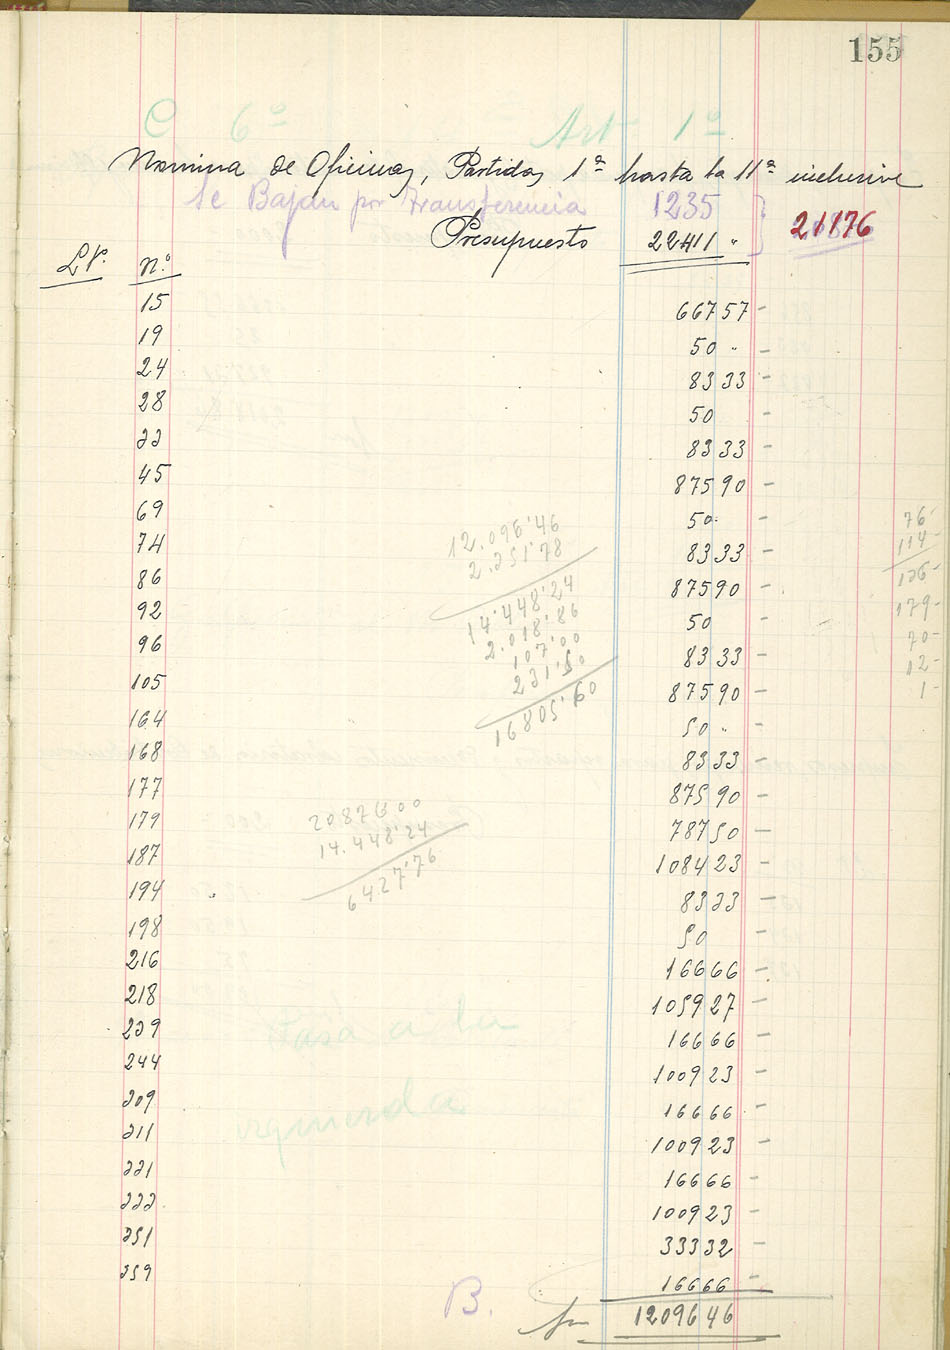 155
C 6º Art 1º
Nomina de Oficinas, Partidas 1ª hasta la 11ª inclusive
Se Bajan por transferencia 1235
Presupuesto 22411 " 21176
Lº. n.º
15 667 57 -
19 50 " -
24 83 33 -
28 50 -
33 83 33 -
45 875 90 -
69 50 -
74 83 33 -
86 875 90 -
92 50 -
96 83 33 -
105 875 90 -
164 50 " -
168 83 33 -
177 875 90 -
179 787 50 -
187 1084 23 -
194 83 33 -
198 50 -
216 166 66 -
218 1059 27 -
239 166 66 -
244 1009 23 -
309 166 66 -
311 1009 23 -
321 166 66 -
333 1009 23 -
351 333 32 -
359 166 66 -
12096 46
12.096'46
2.351'78
14.448'24
2.018'86
107'00
231'50
16805'60
20876 00
14.448'24
6427'76
76-
114-
126-
179-
70-
12-
1-
Pasa a la
izquierda
B.